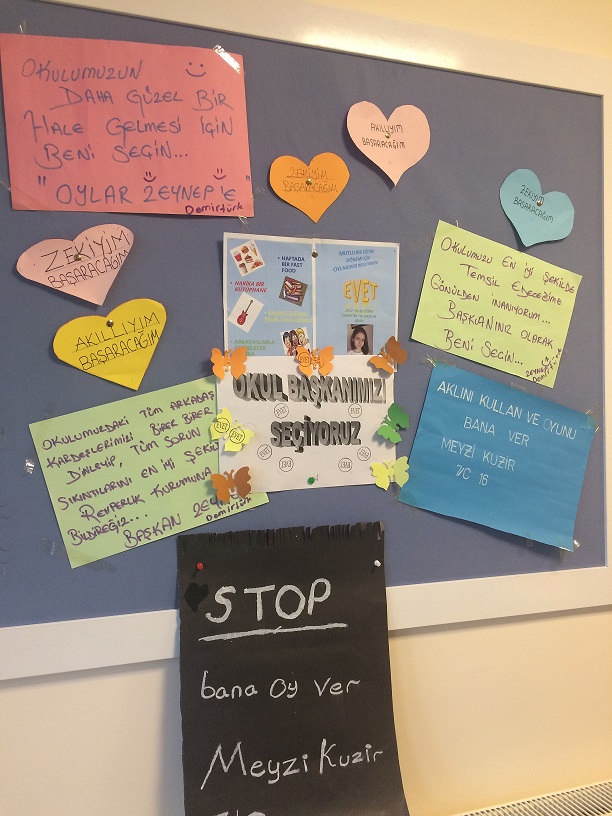 OKULUMUZUN
DAHA GÜZEL BİR
HALE GELMESİ İÇİN
BENİ SEÇİN...
" OYLAR ZEYNEP'E
Demirtürk
AKILLIYIM
BAŞARACAĞIM
ZEKİYİM
BAŞARACAĞIM
ZEKİYİM
BAŞARACAĞIM
ZEKİYİM
BAŞARACAĞIM
AKILLIYIM
BAŞARACAĞIM
• HAFTADA
BİR FAST
FOOD
• HARİKA BİR
KÜTÜPHANE
EVET
OKULUMUZU EN İYİ ŞEKİLDE
TEMSİL EDECEĞİME
GÖNÜLDEN İNANIYORUM...
BAŞKANINIZ OLARAK
BENİ SEÇİN...
ZEYNEP
Demirtürk
OKUL BAŞKANIMIZI
SEÇİYORUZ
EVET
EVET
EVET
EVET
EVET
EVET
EVET
OKULUMUZDAKİ TÜM ARKADAŞ
KARDEŞLERİMİZİ BİRER BİRER
DİNLEYİP, TÜM SORUN
SIKINTILARINI EN İYİ ŞEKİ
REHBERLİK KURUMUNA
BİLDİREĞİZ...
BAŞKAN ZEY
Demirtürk
AKLINI KULLAN VE OYUNU
BANA VER
MEYZİ KUZİR
7/C 16
STOP
bana oy ver
Meyzi Kuzir